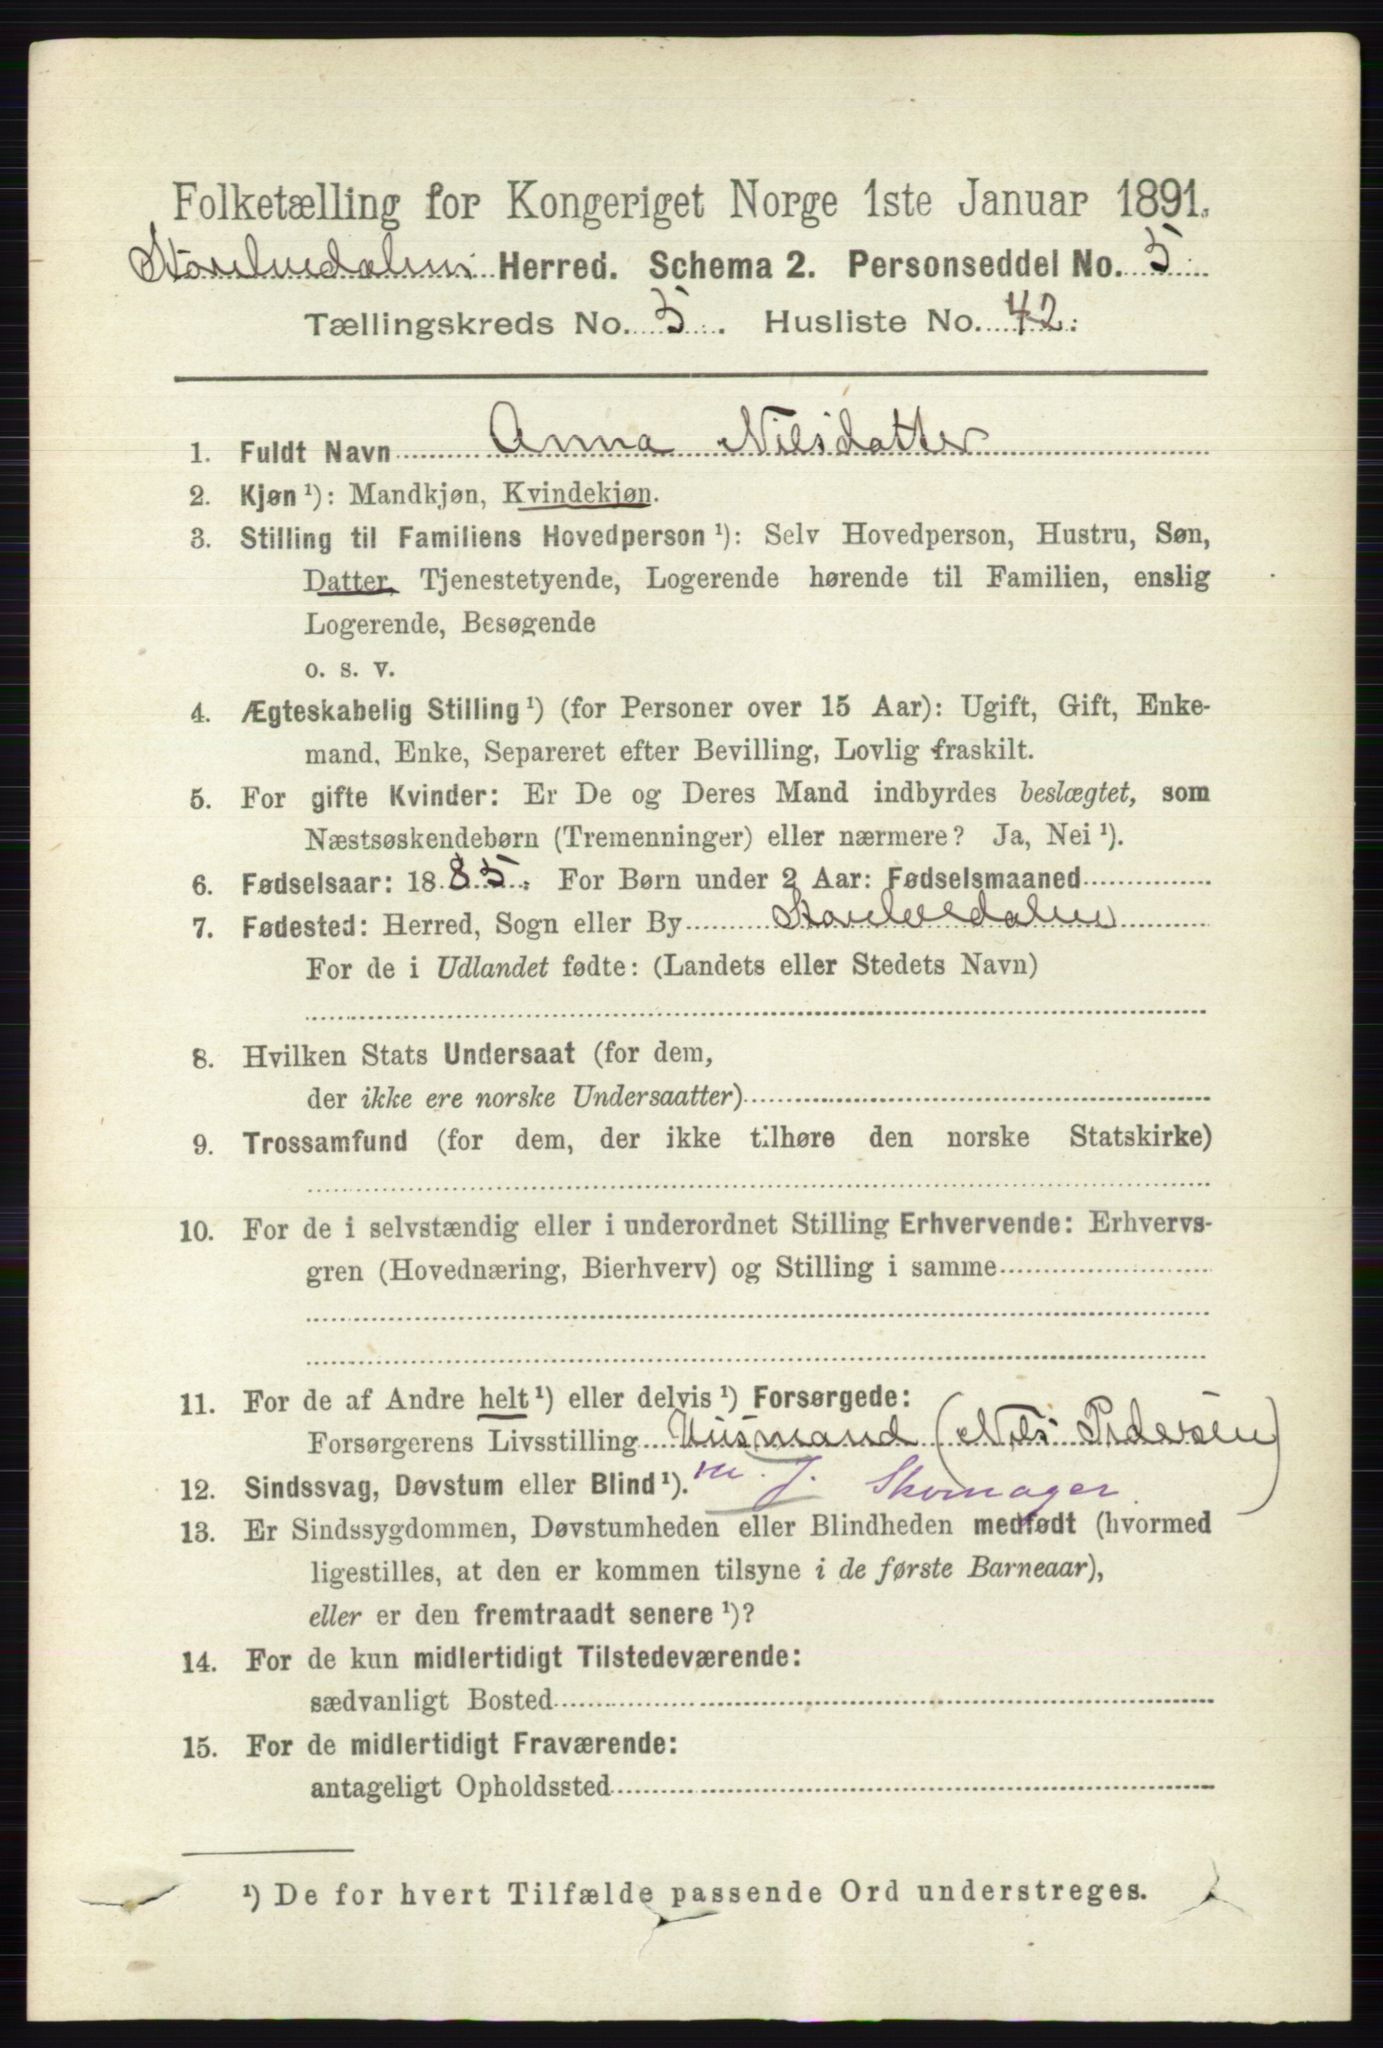 Folketælling for Kongeriget Norge 1ste Januar 1891.
Storelvedalen Herred. Schema 2. Personseddel No. 5
Tællingskreds No. 5. Husliste No. 42.
1. Fuldt Navn Anna Nilsdatter
2. Kjøn ¹): Mandkjøn, Kvindekjøn.
3. Stilling til Familiens Hovedperson ¹): Selv Hovedperson, Hustru, Søn,
Datter, Tjenestetyende, Logerende hørende til Familien, enslig
Logerende, Besøgende
o. s. v.
4. Ægteskabelig Stilling ¹) (for Personer over 15 Aar): Ugift, Gift, Enke-
mand, Enke, Separeret efter Bevilling, Lovlig fraskilt.
5. For gifte Kvinder: Er De og Deres Mand indbyrdes beslægtet, som
Næstsøskendebørn (Tremenninger) eller nærmere? Ja, Nei ¹).
6. Fødselsaar: 1885. For Børn under 2 Aar: Fødselsmaaned
7. Fødested: Herred, Sogn eller By Storelvedalen
For de i Udlandet fødte: (Landets eller Stedets Navn)
8. Hvilken Stats Undersaat (for dem,
der ikke ere norske Undersaatter)
9. Trossamfund (for dem, der ikke tilhøre den norske Statskirke)
10. For de i selvstændig eller i underordnet Stilling Erhvervende: Erhvervs-
gren (Hovednæring, Bierhverv) og Stilling i samme
11. For de af Andre helt ¹) eller delvis ¹) Forsørgede:
Forsørgerens Livsstilling Husmand (Nils Pedersen)
m. J. Skomager
12. Sindssvag, Døvstum eller Blind ¹).
13. Er Sindssygdommen, Døvstumheden eller Blindheden medfødt (hvormed
ligestilles, at den er kommen tilsyne i de første Barneaar),
eller er den fremtraadt senere ¹)?
14. For de kun midlertidigt Tilstedeværende:
sædvanligt Bosted
15. For de midlertidigt Fraværende:
antageligt Opholdssted
¹) De for hvert Tilfælde passende Ord understreges.